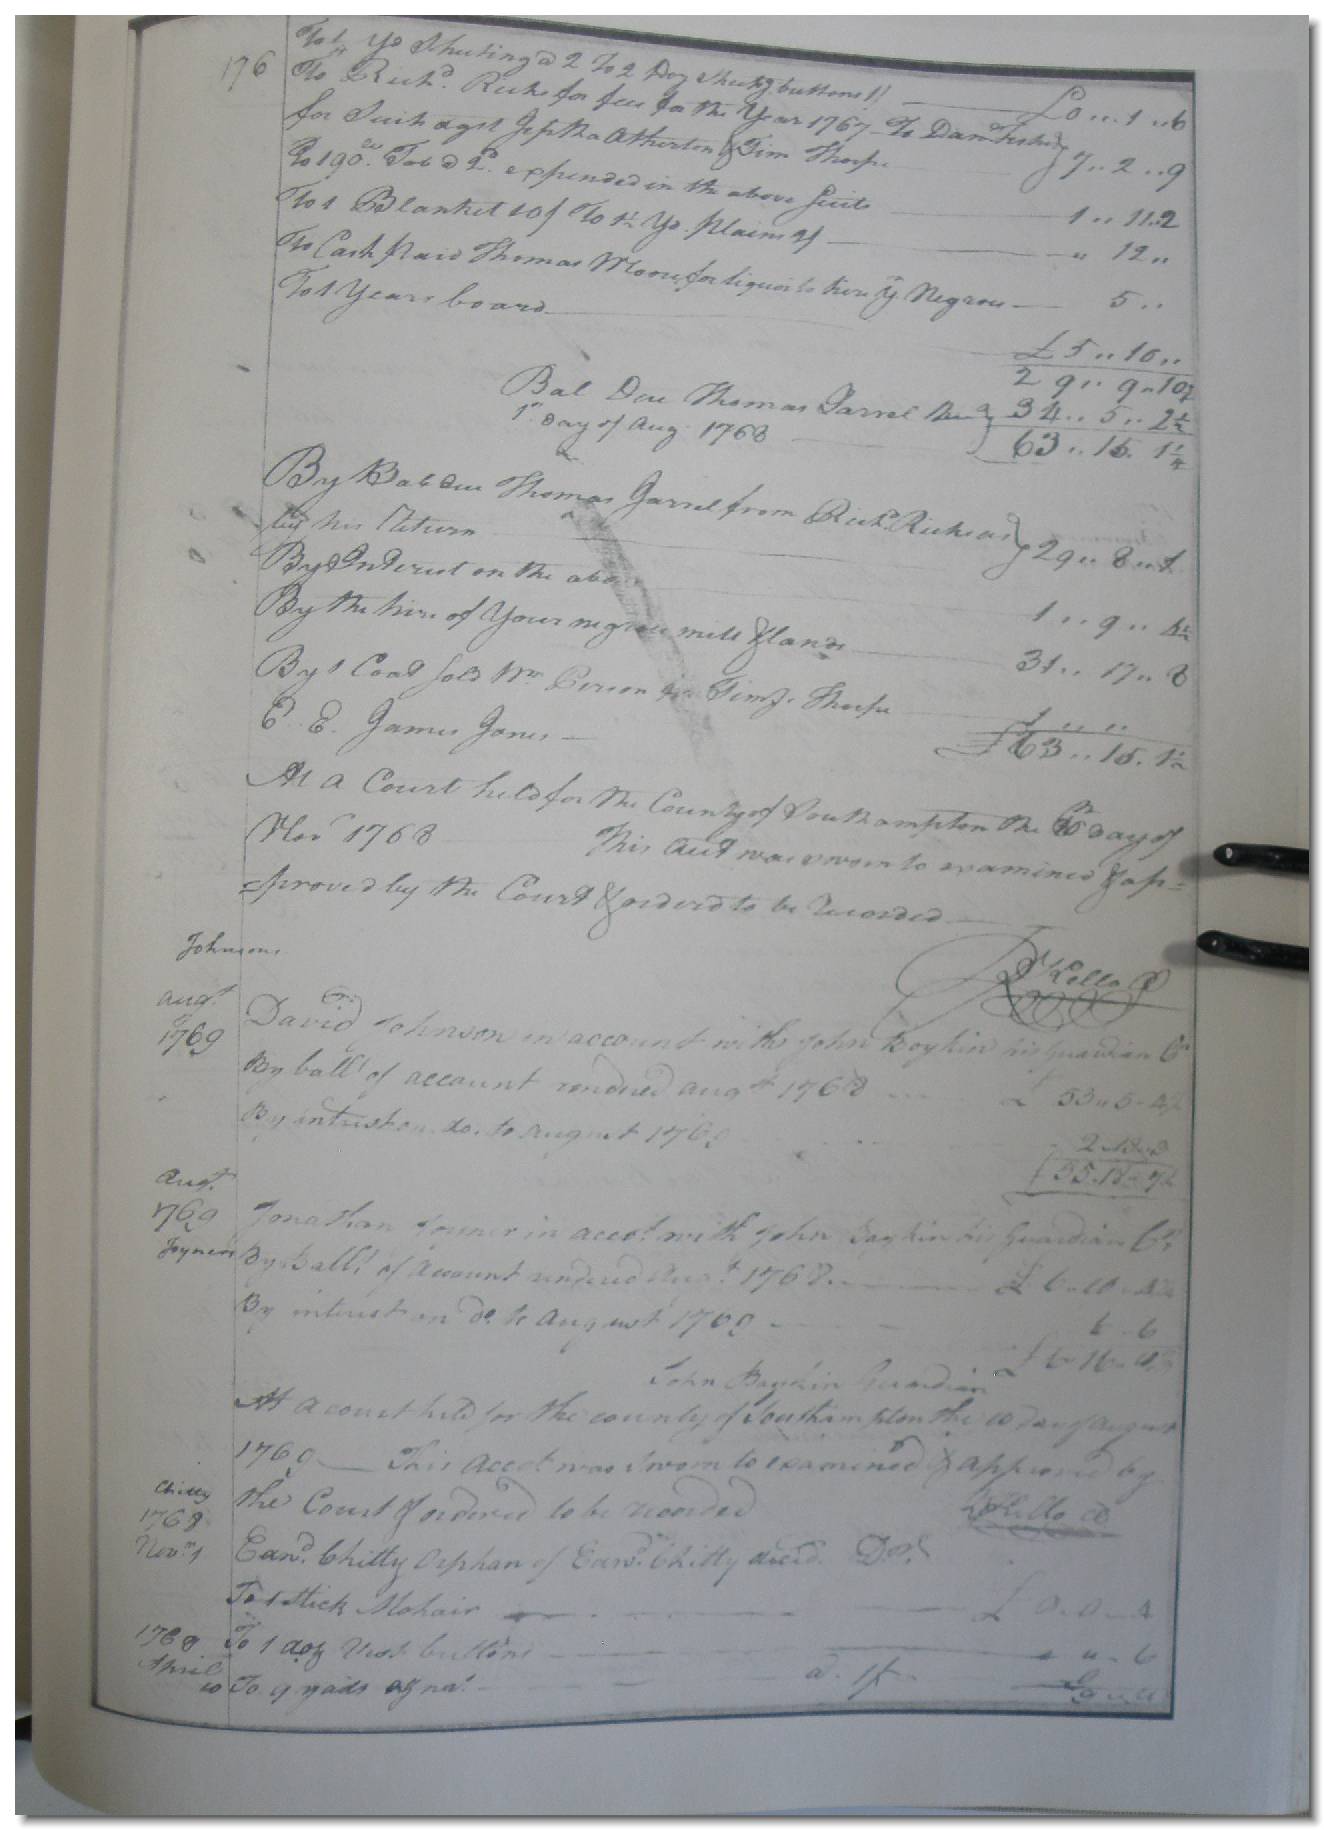 176
To 1 Yd Shuting @ 2 To 2 Doz buttons 1/ £0 .. 1 .. 6
To Richd. Ricks for fees for the Year 1767 To Danl
for Suits agst Jeptha Atherton & Tim Thorpe 7 .. 2 .. 9
To 190 Tob @ 2d. expended in the above Suits 1 .. 11..2
To 1 Blanket 10/ To 1½ Yd. plains 2/ " 12 ..
To Cash paid Thomas Moore for liquor to hire ye Negroes 5 ..
To 1 Years board £5 .. 10 ..
29 .. 9 .. 10
Bal Due Thomas Jarrel the 34 .. 5 .. 2½
1st Day of Aug 1768 63 .. 15. 1¼
By Bal due Thomas Jarrel from Richd. Ricks as
by his Return 29 .. 8 ..
By Interest on the above 1 .. 9 ..
By the hire of Your negroes mill & lands 31 .. 17 .. 8
By 1 Coat sold Wm Person for Timy. Thorpe 1 .. ..
E. E. James Jones £63 .. 15. 1½
At a Court held for the County of Southampton the day of
Novr 1768 This acct was sworn to examined & ap=
=proved by the Court & orderd to be Recorded
Rd Kello
Johnsons
Augt
1769
David Johnson in account with John Boykin his Guardian Cr
By ball of account rendred augt 1768 £ 53 .. 5
By intrust on do. to august 1769 2
55
Augt.
1769
Jonathan Joyner in accot with John Boykin his Guardian Cr.
Joyners By Ball of account rendered Augt 1768 £ 6 .. 10
By intrust on do. to august 1769 6 .. 6
£ 6 .. 16
John Boykin Guardian
At a court held for the county of Southampton the 10 day of august
1769 This accot was Sworn to examined & approved by
the Court & ordered to be recorded Kello
Chitty
1768
Novr 1
Edwd. Chitty Orphan of Edwd. Chitty decd. Dr.
To 1 Stick Mohair £ 0 .. 0 .. 4
1768 To 1 doz Vest buttons " .. 6
April
10 To 9 yads a 1/